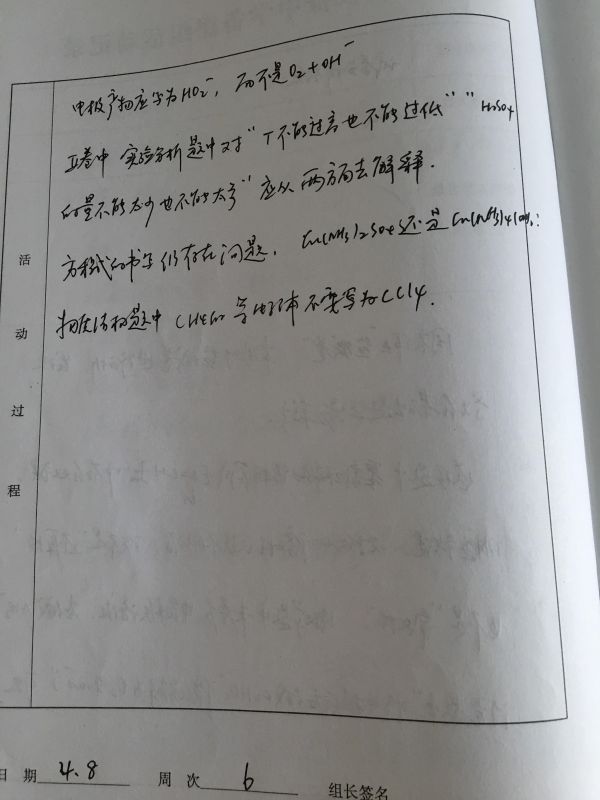 电极产物应写为HO₂⁻, 而不是O₂+OH⁻
Ⅱ卷中 实验分析题中对“T不能过高也不能过低”“H₂SO₄
的量不能太少也不能太多”应从两方面去解释.
方程式的书写仍存在问题. 还是
物质结构题中 CH₄的等电子体不要写为CCl₄.
活
动
过
程
日 期 4.8 周 次 6 组长签名